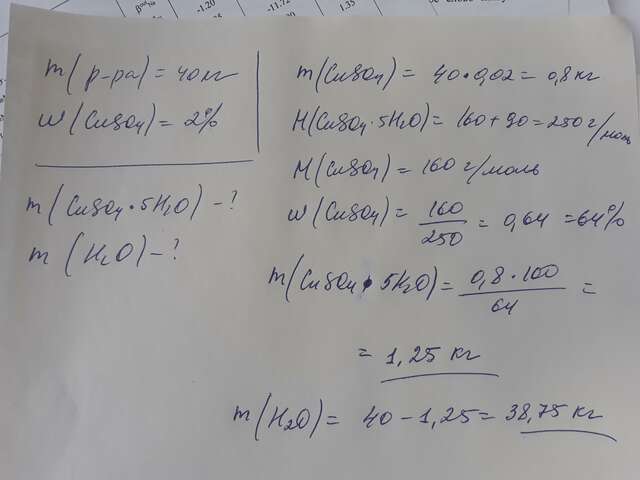 -1.20
-11.72
1.35
m(р-ра) = 40 кг
w(CuSO4) = 2%
m(CuSO4·5H2O) - ?
m (H2O) - ?
m(CuSO4) = 40·0,02 = 0,8 кг
M(CuSO4·5H2O) = 160 + 90 = 250 г/моль
M(CuSO4) = 160 г/моль
w(CuSO4) = 160/250 = 0,64 = 64%
m(CuSO4·5H2O) = 0,8·100/64 =
= 1,25 кг
m(H2O) = 40 - 1,25 = 38,75 кг